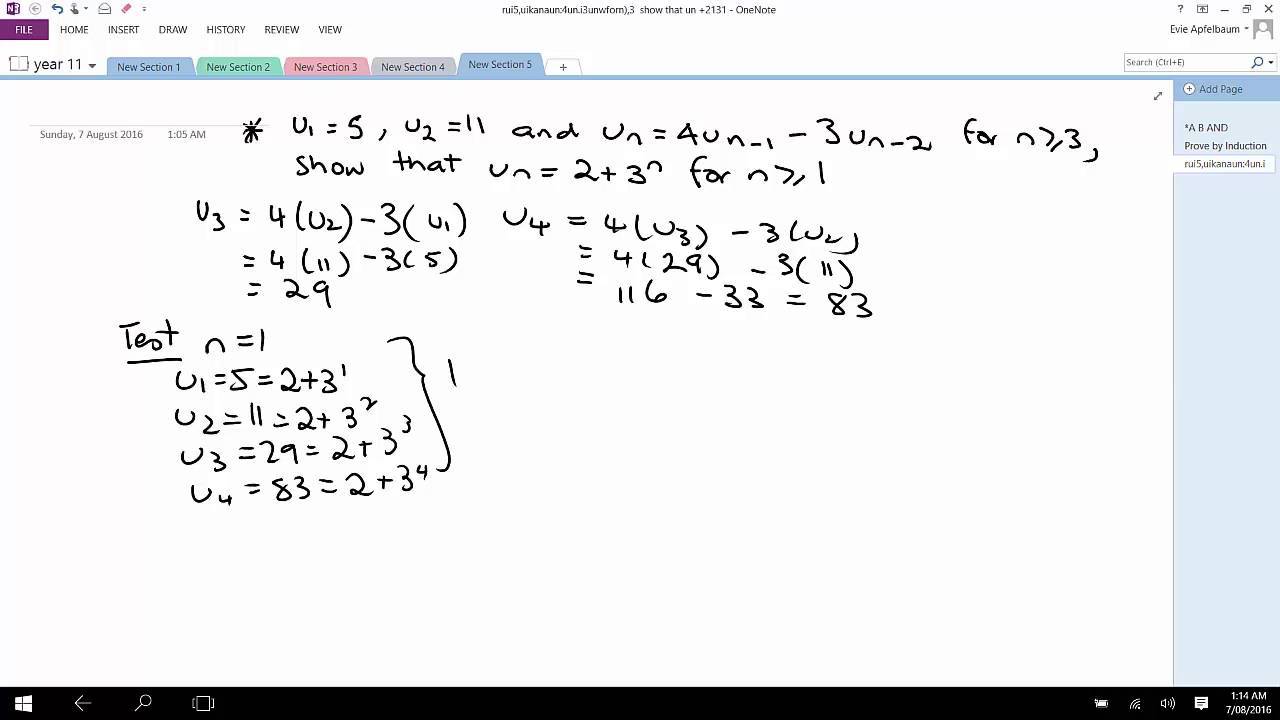 rui5,uikanaun:4un.i3unwforn),3 show that un +2131 - OneNote
Evie Apfelbaum
FILE HOME INSERT DRAW HISTORY REVIEW VIEW
year 11 New Section 1 New Section 2 New Section 3 New Section 4 New Section 5 +
Search (Ctrl+E)
Add Page
*A B AND
Prove by Induction
rui5,uikanaun:4un.i
Sunday, 7 August 2016 1:05 AM
* u₁ = 5, u₂ = 11 and uₙ = 4uₙ₋₁ − 3uₙ₋₂ for n ≥ 3,
show that uₙ = 2 + 3ⁿ for n ≥ 1
u₃ = 4(u₂) − 3(u₁)
= 4(11) − 3(5)
= 29
u₄ = 4(u₃) − 3(u₂)
= 4(29) − 3(11)
= 116 − 33 = 83
Test n = 1
u₁ = 5 = 2 + 3¹
u₂ = 11 = 2 + 3²
u₃ = 29 = 2 + 3³
u₄ = 83 = 2 + 3⁴
} 1
1:14 AM
7/08/2016